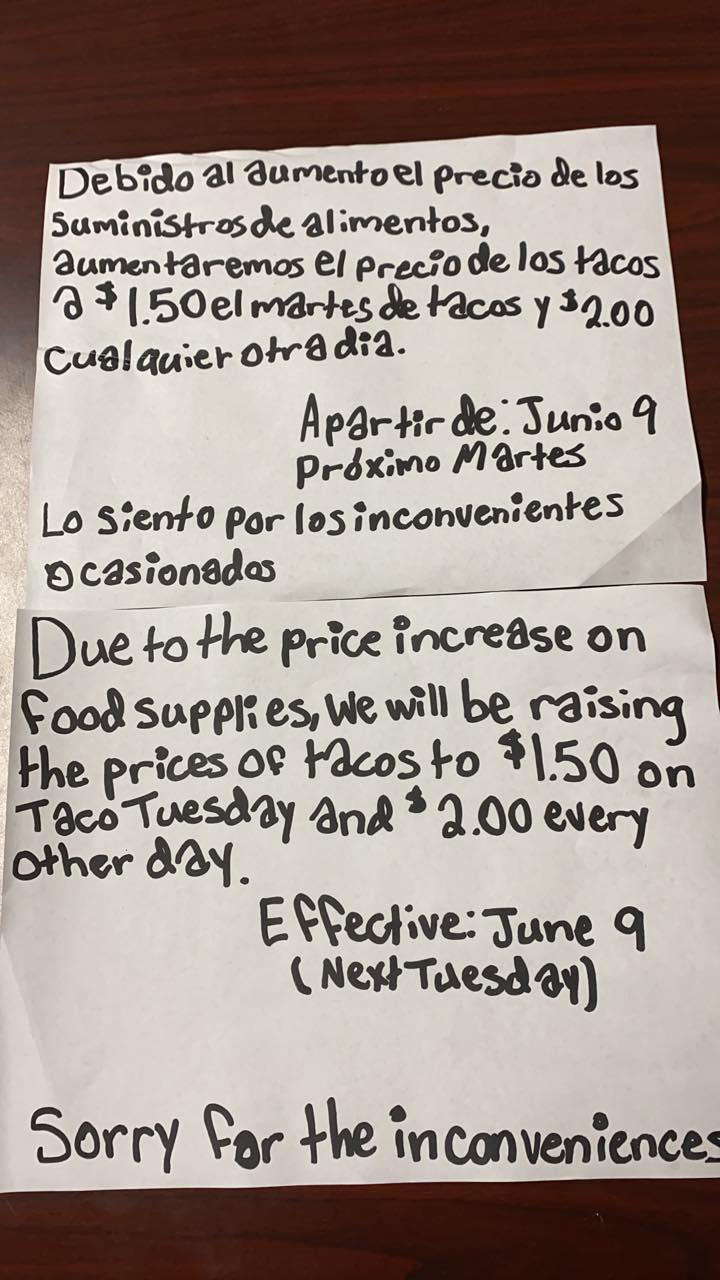 Debido al aumento el precio de los
suministros de alimentos,
aumentaremos el precio de los tacos
a $1.50 el martes de tacos y $2.00
cualquier otra dia.
Apartir de: Junio 9
Próximo Martes
Lo siento por los inconvenientes
ocasionados
Due to the price increase on
food supplies, We will be raising
the prices of tacos to $1.50 on
Taco Tuesday and $2.00 every
other day.
Effective: June 9
(Next Tuesday)
Sorry for the inconveniences